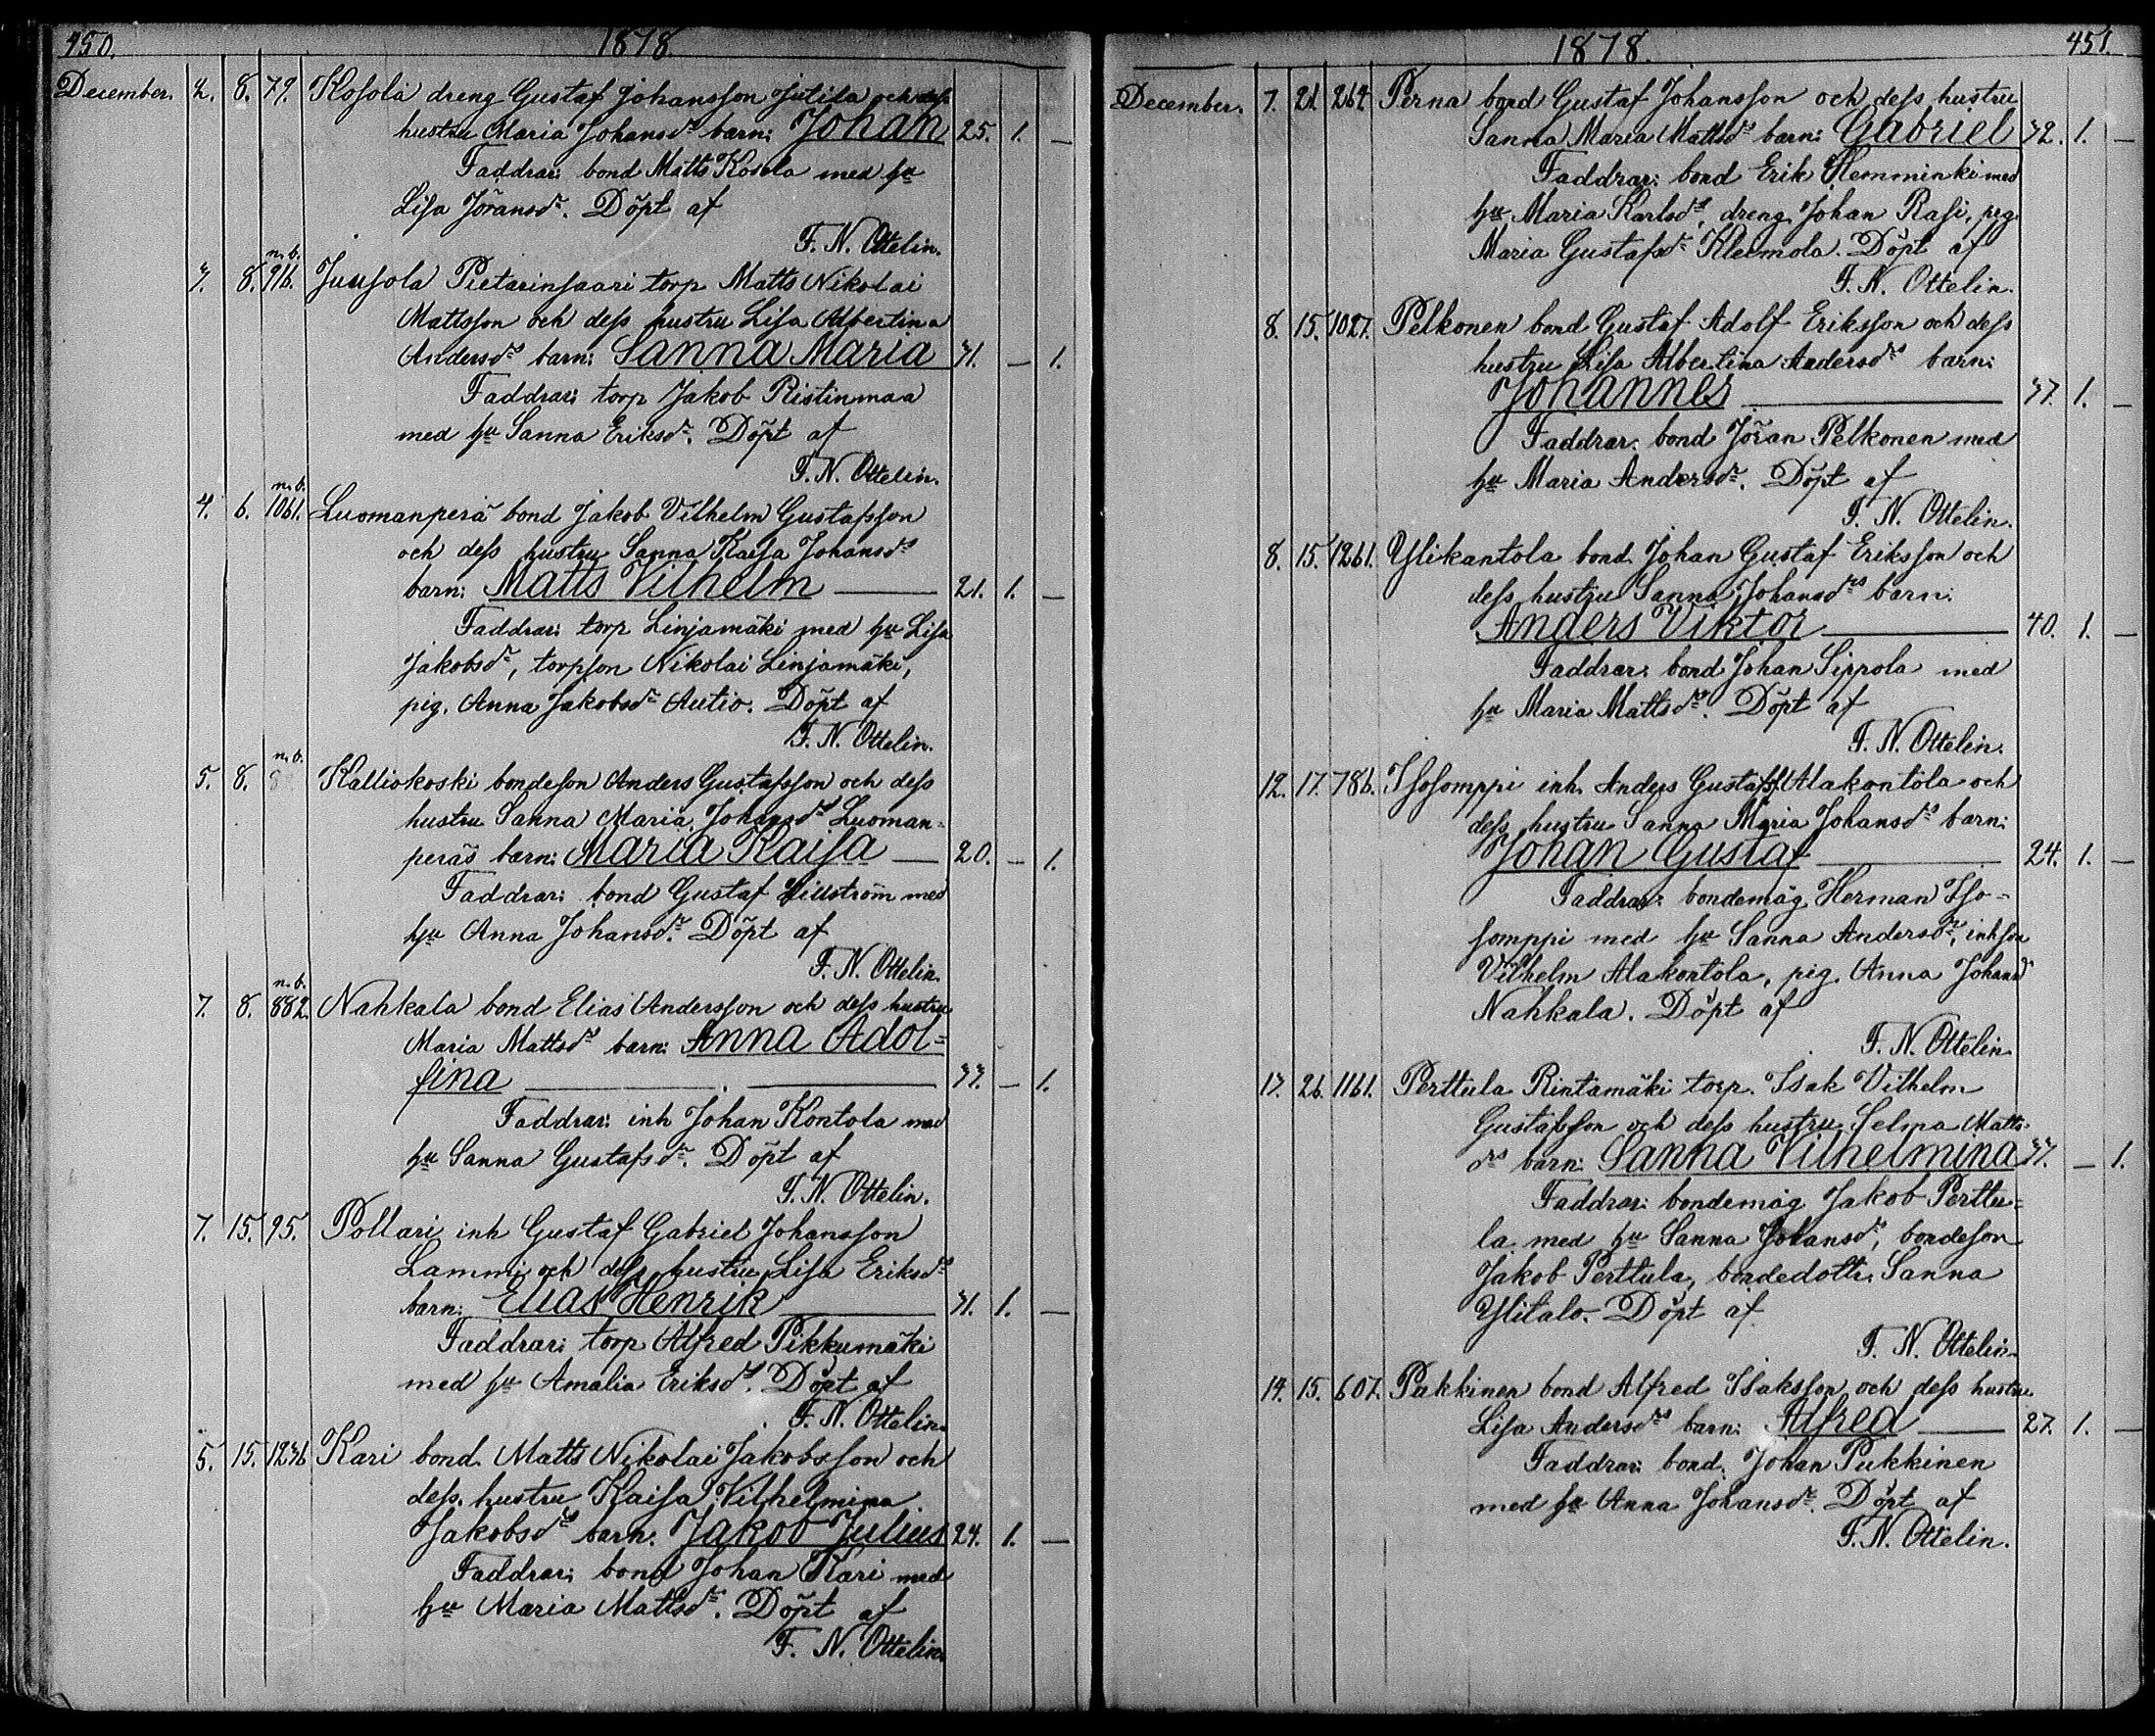 450. 1878.
December. 2. 8. 79. Kosola dreng Gustaf Johansson Jutila och dess
hustru Maria Johansdrs barn: Johan 25. 1. —
Faddrar: bond Matts Kosola med hu
Lisa Jöransdr. Döpt af
F. N. Ottelin.
n. b.
8. 916. Jussola Pietarinsaari torp Matts Nikolai
Mattsson och dess hustru Lisa Albertina
Andersdrs barn: Sanna Maria 31. — 1.
Faddrar: torp Jakob Ristinmaa
med hu Sanna Eriksdr. Döpt af
F. N. Ottelin.
n. b.
4. 6. 1061. Luomanperä bond Jakob Vilhelm Gustafsson
och dess hustru Sanna Kaisa Johansdrs
barn: Matts Vilhelm — 21. 1. —
Faddrar: torp Linjamäki med hu Lisa
Jakobsdr, torpson Nikolai Linjamäki,
pig. Anna Jakobsdr Autio. Döpt af
F. N. Ottelin.
n. b.
5. 8. 8 Kalliokoski bondeson Anders Gustafsson och dess
hustru Sanna Maria Johansdrs Luoman-
peräs barn: Maria Kaisa — 20. — 1.
Faddrar: bond Gustaf Lillström med
hu Anna Johansdr. Döpt af
F. N. Ottelin.
n. b.
7. 8. 882. Nahkala bond Elias Andersson och dess hustru
Maria Mattsdrs barn: Anna Adol=
fina — 37. — 1.
Faddrar: inh Johan Kontola med
hu Sanna Gustafsdr. Döpt af
F. N. Ottelin.
7. 15. 95. Pollari inh Gustaf Gabriel Johansson
Lammi och dess hustru Lisa Eriksdrs
barn: Elias Henrik — 31. 1. —
Faddrar: torp Alfred Pikkumäki
med hu Amalia Eriksdr. Döpt af
F. N. Ottelin.
5. 15. 1236 Kari bond. Matts Nikolai Jakobsson och
dess hustru Kaisa Vilhelmina
Jakobsdrs barn. Jakob Julius 24. 1. —
Faddrar: bond Johan Kari med
hu Maria Mattsdr. Döpt af
F. N. Ottelin.
1878. 451.
December. 7. 21. 264. Perna bond Gustaf Johansson och dess hustru
Sanna Maria Mattsdrs barn: Gabriel 32. 1. —
Faddrar: bond Erik Hemminki med
hu Maria Karlsdr, dreng Johan Rasi, pig.
Maria Gustafsdr Kleimola. Döpt af
F. N. Ottelin.
8. 15. 1027. Pelkonen bond Gustaf Adolf Eriksson och dess
hustru Lisa Albertina Andersdrs barn:
Johannes — 37. 1. —
Faddrar: bond Jöran Pelkonen med
hu Maria Andersdr. Döpt af
F. N. Ottelin.
8. 15. 1261. Ylikantola bond. Johan Gustaf Eriksson och
dess hustru Sanna Johansdrs barn:
Anders Viktor — 40. 1. —
Faddrar: bond Johan Sippola med
hu Maria Mattsdr. Döpt af
F. N. Ottelin.
12. 17. 786. Isosomppi inh. Anders Gustafss. Alakontola och
dess hustru Sanna Maria Johansdrs barn:
Johan Gustaf — 24. 1. —
Faddrar: bondemåg Herman Iso-
somppi med hu Sanna Andersdr, inhson
Vilhelm Alakontola, pig. Anna Johansdr
Nahkala. Döpt af
F. N. Ottelin.
17. 26. 1161. Perttula Rintamäki torp. Isak Vilhelm
Gustafsson och dess hustru Selma Matts-
drs barn: Sanna Vilhelmina 37. — 1.
Faddrar: bondemåg Jakob Perttu=
la med hu Sanna Johansdr, bondeson
Jakob Perttula, bondedottr. Sanna
Ylitalo. Döpt af
F. N. Ottelin.
14. 15. 607. Pukkinen bond Alfred Isaksson och dess hustru
Lisa Andersdrs barn: Alfred — 27. 1. —
Faddrar: bond. Johan Pukkinen
med hu Anna Johansdr. Döpt af
F. N. Ottelin.